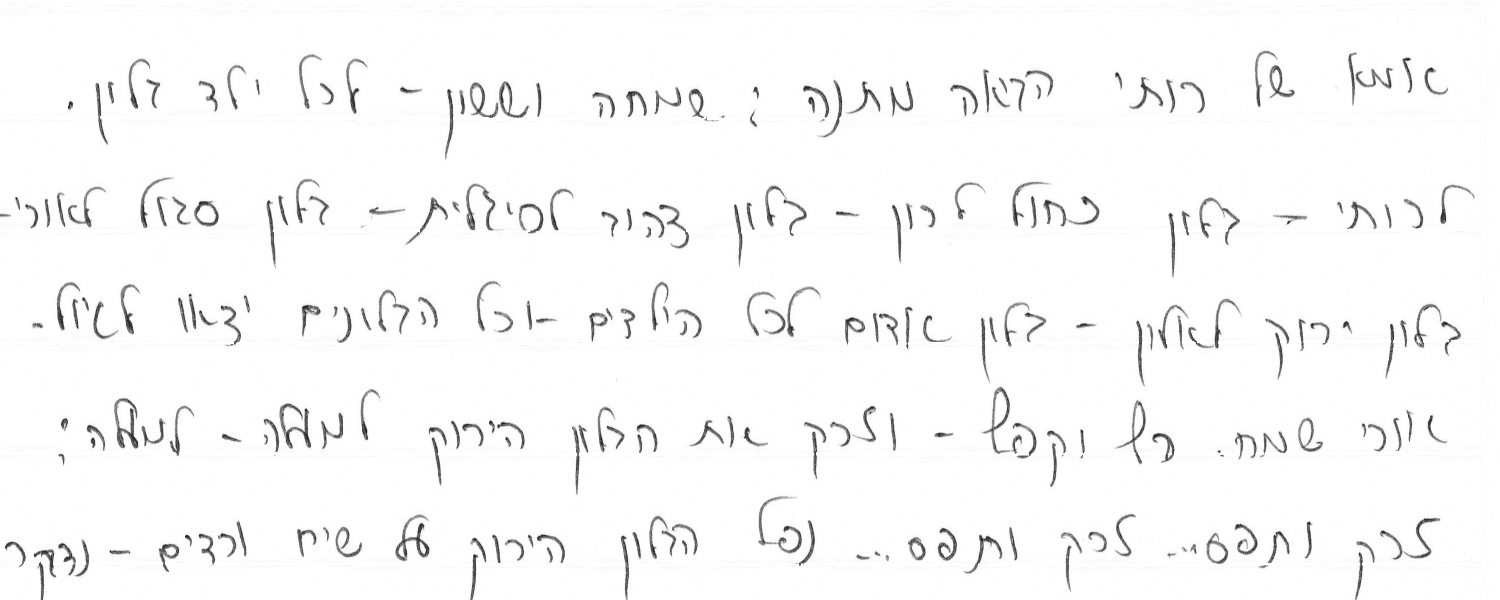 אמא של רותי הביאה מתנה; שמחה וששון - לכל ילד בלון.
לרותי - בלון כחול לרון - בלון צהוב לסיגלית - בלון סגול לאורי-
בלון ירוק לאלון - בלון אדום לכל הילדים - וכל הבלונים יצאו לטיול.
אורי שמח. רץ וקפץ - וזרק את הבלון הירוק למעלה - למעלה;
זרק ותפס... זרק ותפס... נפל הבלון הירוק על שיח ורדים - נדקר